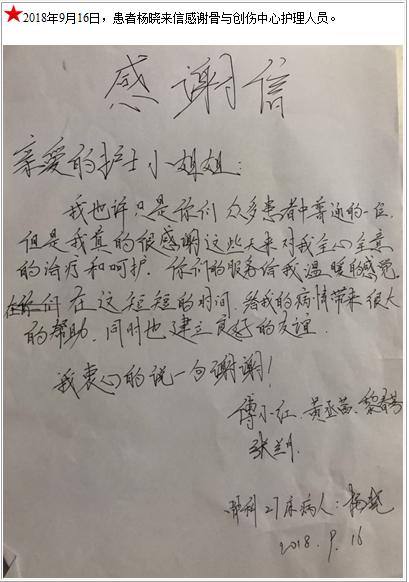 2018年9月16日，患者杨晓来信感谢骨与创伤中心护理人员。
感谢信
亲爱的护士小姐姐：
我也许只是你们众多患者中普通的一位，
但是我真的很感谢这些天来对我全心全意
的治疗和呵护.你们的服务给我温暖的感觉.
在你们在这短短的时间.给我的病情带来很大
的帮助.同时也建立良好的友谊.
我衷心的说一句谢谢！
傅小红.黄丞茜.黎春芳
张兰
骨科27床病人：杨晓
2018.9.16